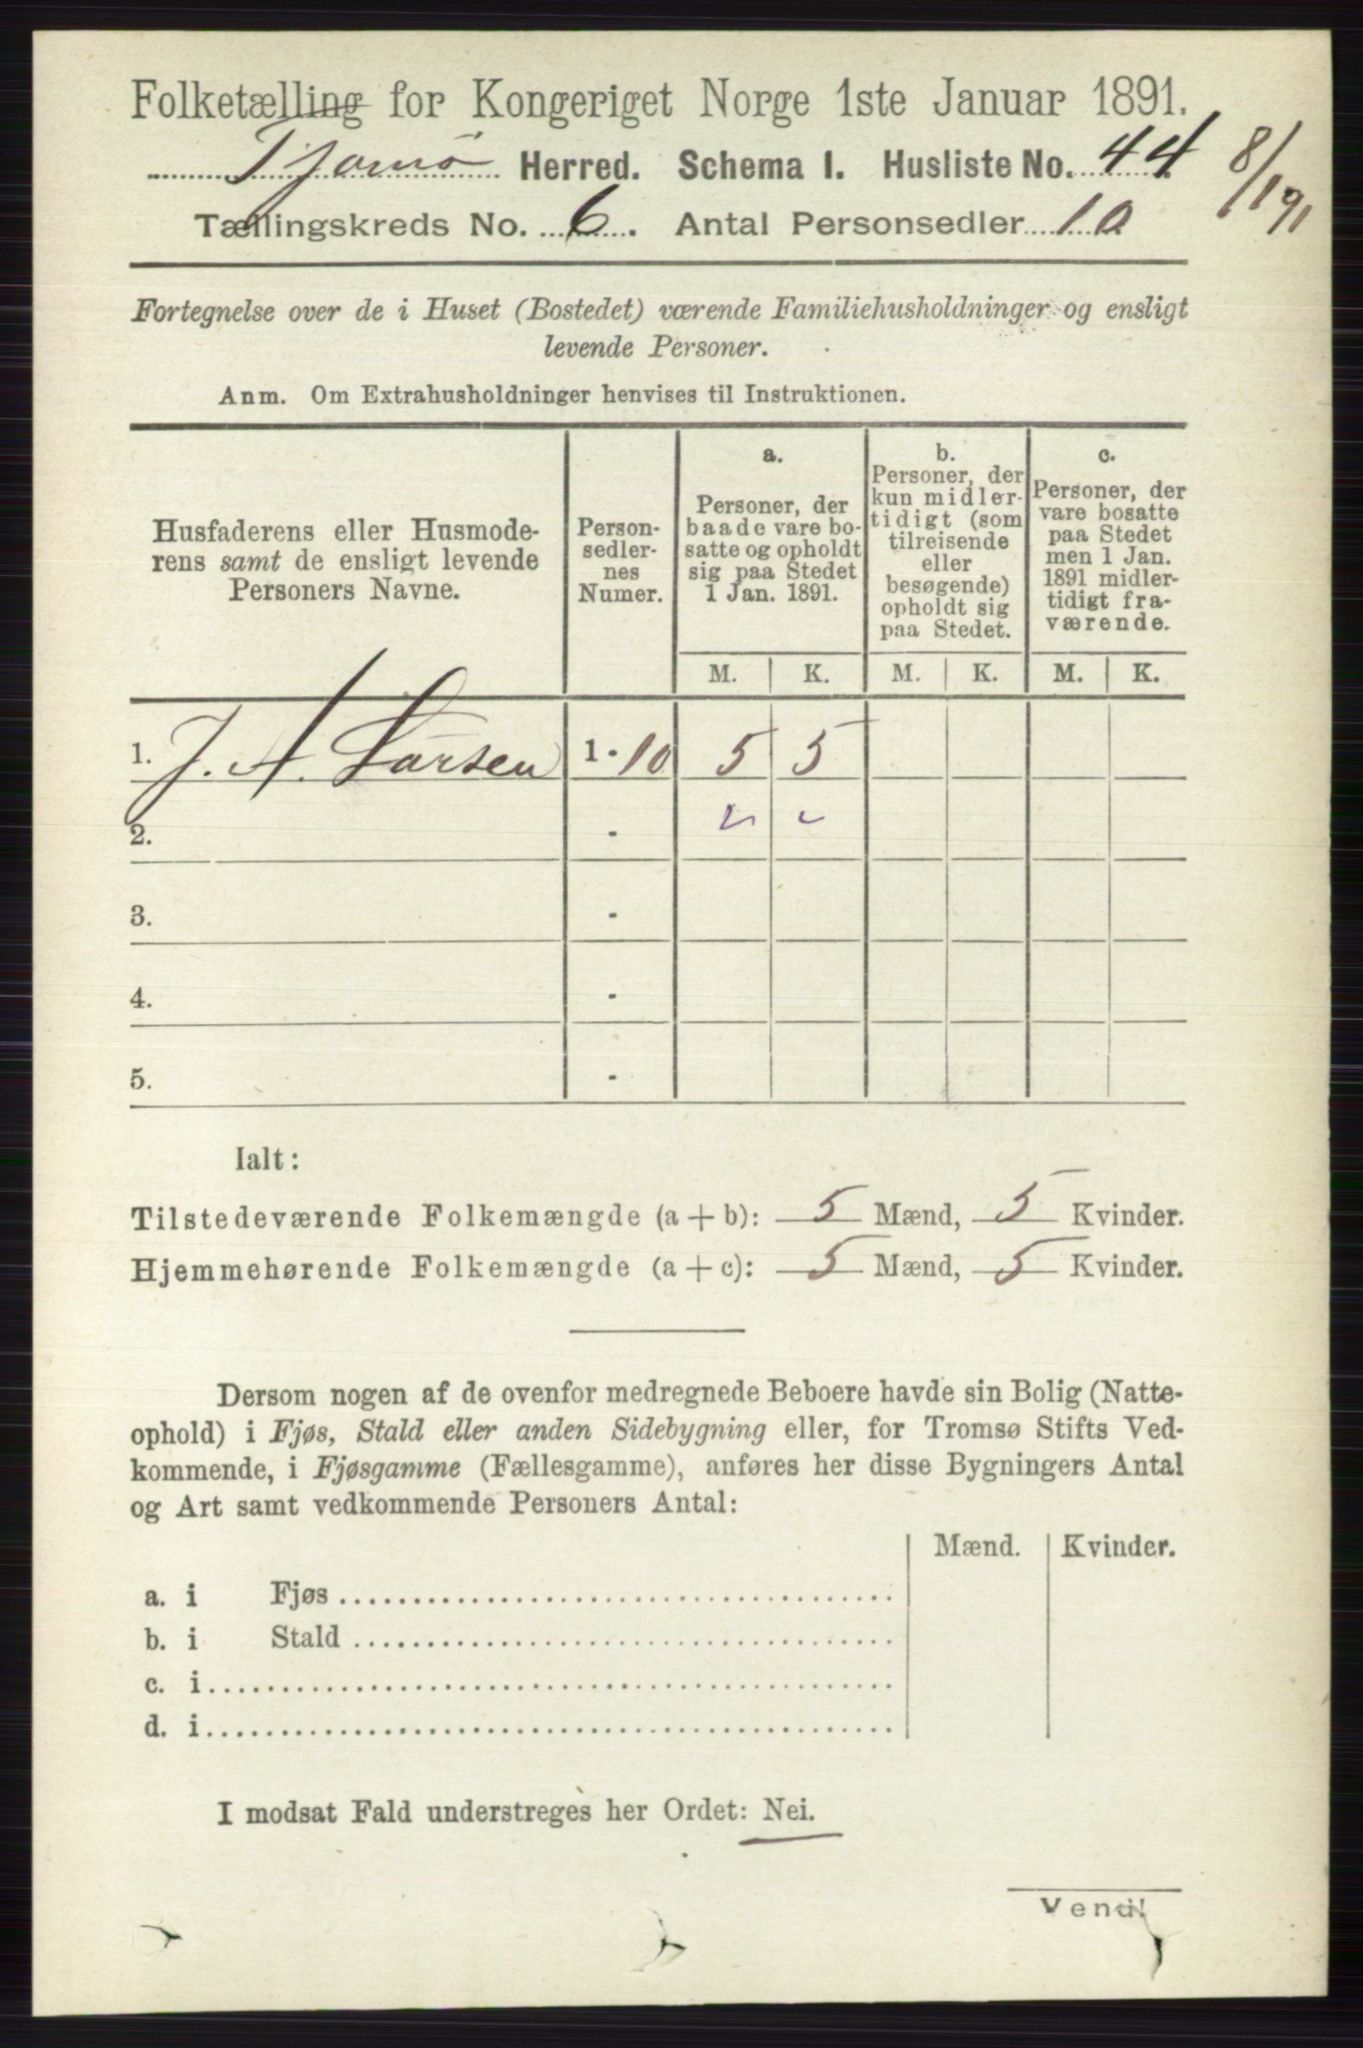 Folketælling for Kongeriget Norge 1ste Januar 1891.
Tjømø Herred. Schema I. Husliste No. 44
8/1 91
Tællingskreds No. 6. Antal Personsedler 10
Fortegnelse over de i Huset (Bostedet) værende Familiehusholdninger og ensligt
levende Personer.
Anm. Om Extrahusholdninger henvises til Instruktionen.
Husfaderens eller Husmode-
rens samt de ensligt levende
Personers Navne.
Person-
sedler-
nes
Numer.
a.
Personer, der
baade vare bo-
satte og opholdt
sig paa Stedet
1 Jan. 1891.
b.
Personer, der
kun midler-
tidigt (som
tilreisende
eller
besøgende)
opholdt sig
paa Stedet.
c.
Personer, der
vare bosatte
paa Stedet
men 1 Jan.
1891 midler-
tidigt fra-
værende.
M. K. M. K. M. K.
1. J. A. Larsen 1-10 5 5
2. -
3. -
4. -
5. -
Ialt:
Tilstedeværende Folkemængde (a + b): 5 Mænd, 5 Kvinder.
Hjemmehørende Folkemængde (a + c): 5 Mænd, 5 Kvinder.
Dersom nogen af de ovenfor medregnede Beboere havde sin Bolig (Natte-
ophold) i Fjøs, Stald eller anden Sidebygning eller, for Tromsø Stifts Ved-
kommende, i Fjøsgamme (Fællesgamme), anføres her disse Bygningers Antal
og Art samt vedkommende Personers Antal:
Mænd. Kvinder.
a. i Fjøs
b. i Stald
c. i
d. i
I modsat Fald understreges her Ordet: Nei.
Vend!